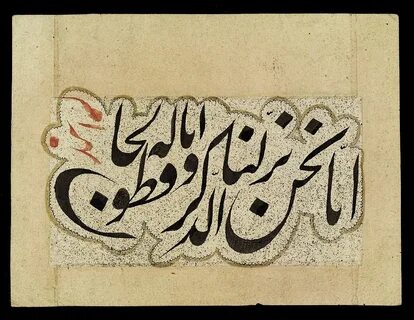 انّا نحن نزلنا الذکر و انا له لحافظون